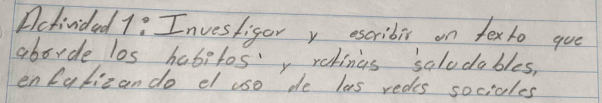 Actividad 1: Investigar y escribir un texto que
aborde los habitos y rutinas saludables,
enfatizando el uso de las redes sociales